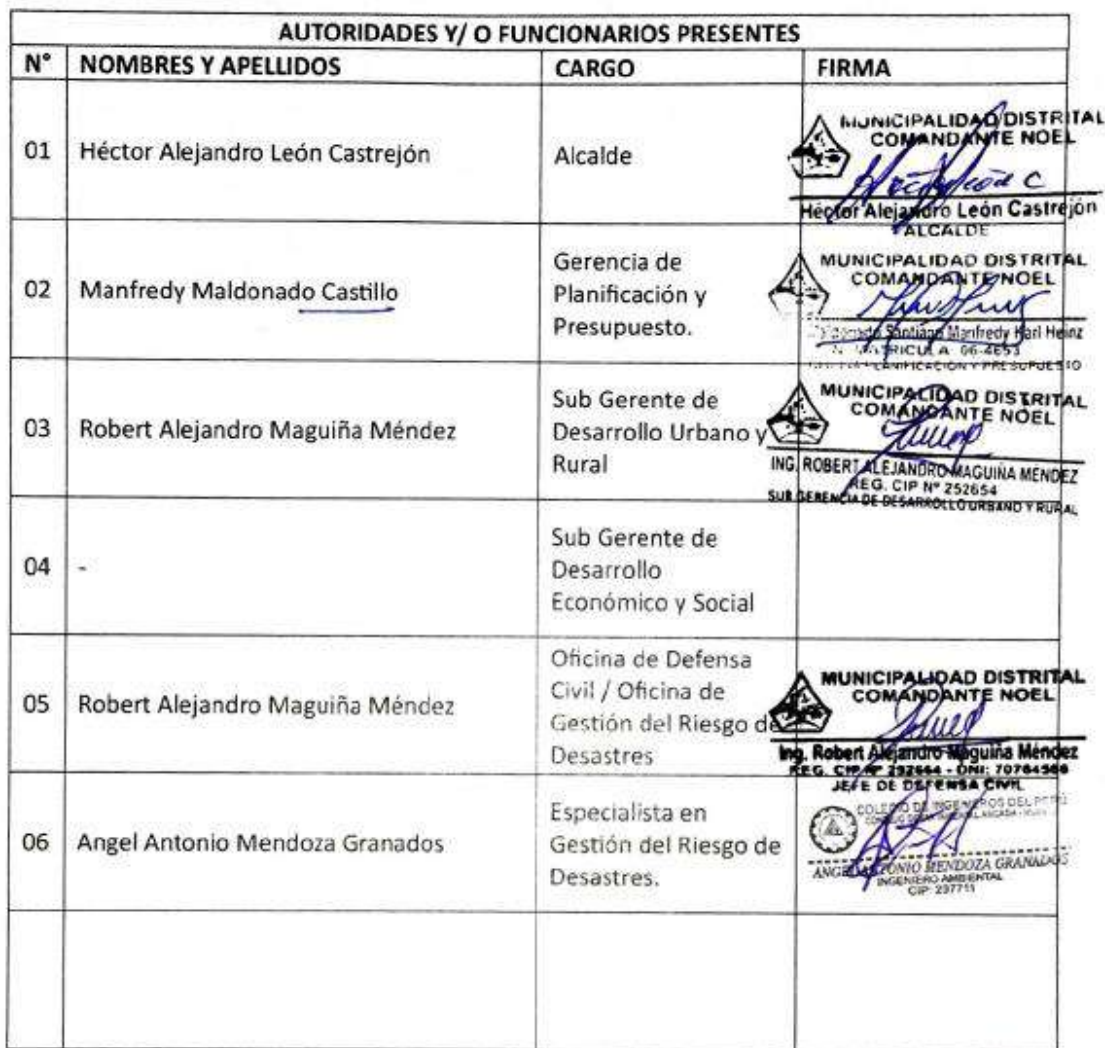 AUTORIDADES Y/ O FUNCIONARIOS PRESENTES
N° NOMBRES Y APELLIDOS CARGO FIRMA
01 Héctor Alejandro León Castrejón Alcalde
MUNICIPALIDAD DISTRITAL
COMANDANTE NOEL
Héctor Alejandro León Castrejón
ALCALDE
02 Manfredy Maldonado Castillo
Gerencia de
Planificación y
Presupuesto.
MUNICIPALIDAD DISTRITAL
COMANDANTE NOEL
Santiago Manfredy Karl Heinz
MATRICULA 06-4653
PLANIFICACION Y PRESUPUESTO
03 Robert Alejandro Maguiña Méndez
Sub Gerente de
Desarrollo Urbano y
Rural
MUNICIPALIDAD DISTRITAL
COMANDANTE NOEL
ING. ROBERT ALEJANDRO MAGUIÑA MÉNDEZ
REG. CIP N° 252654
SUB GERENCIA DE DESARROLLO URBANO Y RURAL
04 -
Sub Gerente de
Desarrollo
Económico y Social
05 Robert Alejandro Maguiña Méndez
Oficina de Defensa
Civil / Oficina de
Gestión del Riesgo de
Desastres
MUNICIPALIDAD DISTRITAL
COMANDANTE NOEL
Ing. Robert Alejandro Maguiña Méndez
REG. CIP N° - DNI: 70764566
JEFE DE DEFENSA CIVIL
06 Angel Antonio Mendoza Granados
Especialista en
Gestión del Riesgo de
Desastres.
COLEGIO DE INGENIEROS DEL PERÚ
ANGEL ANTONIO MENDOZA GRANADOS
INGENIERO AMBIENTAL
CIP: 297711